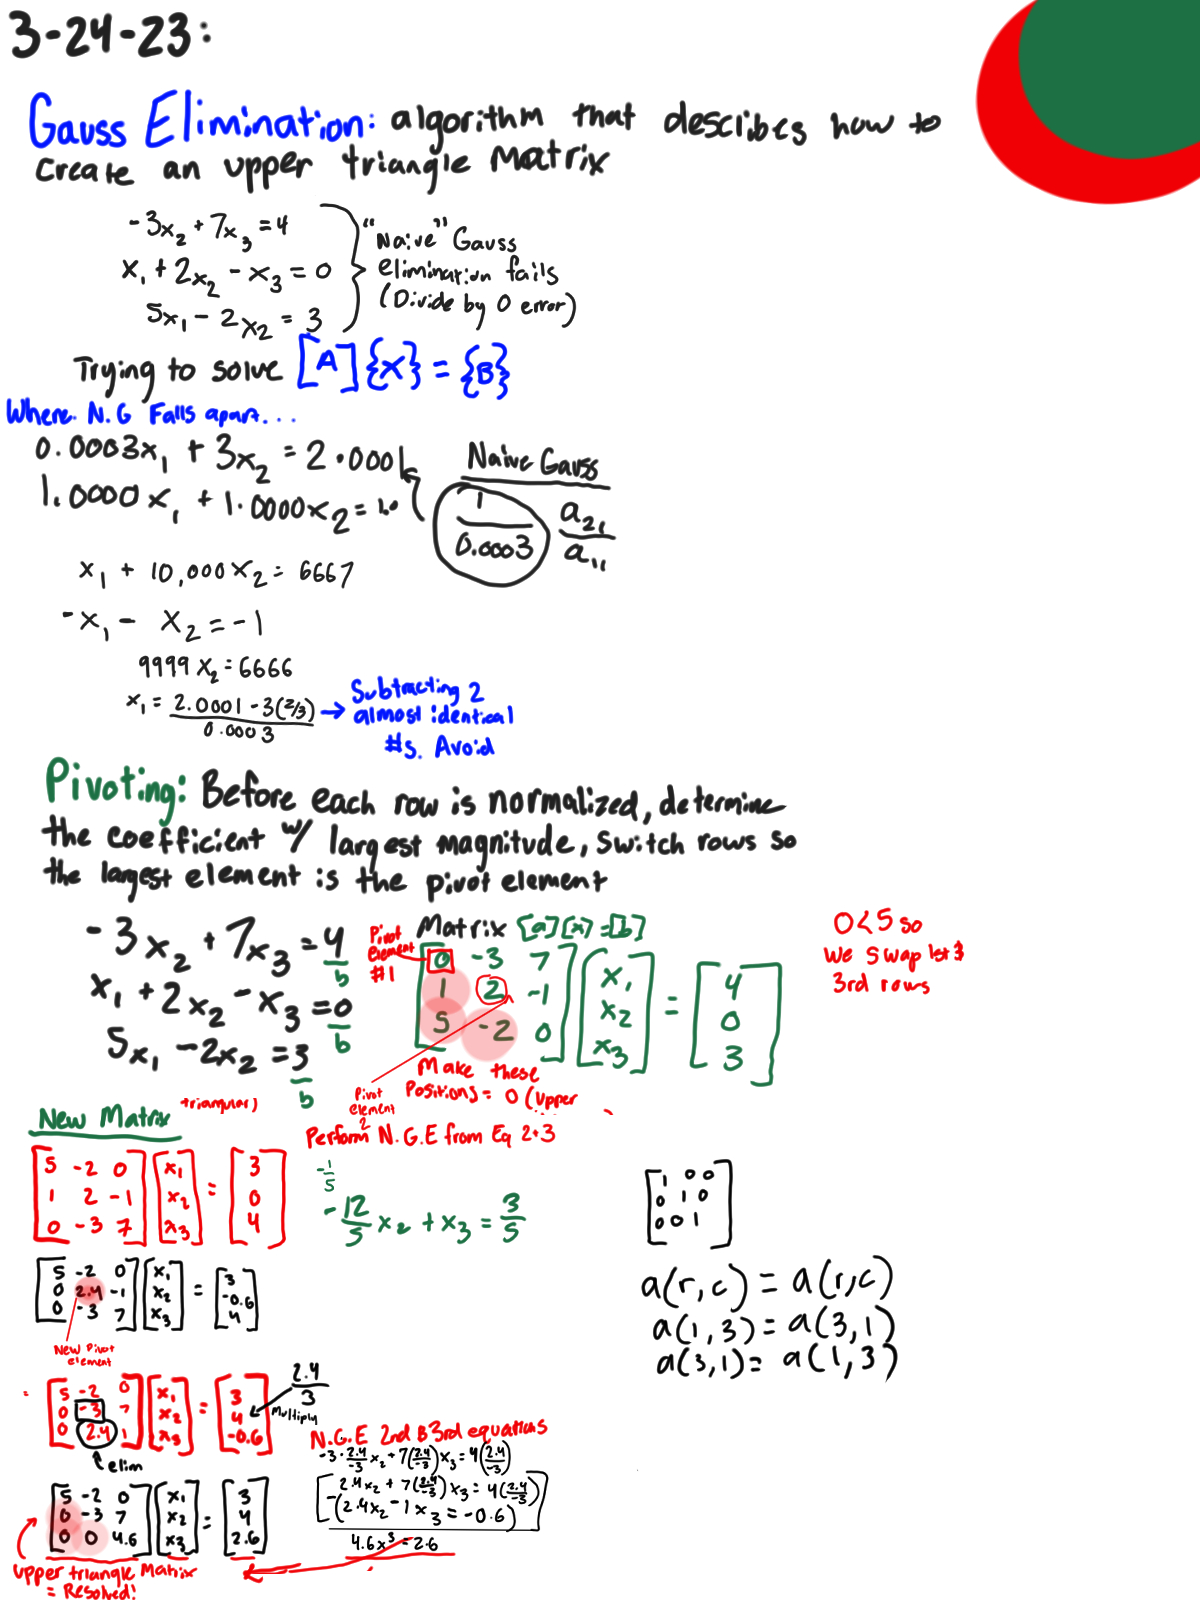 3-24-23:
Gauss Elimination: algorithm that describes how to
create an upper triangle Matrix
-3x₂ + 7x₃ = 4
x₁ + 2x₂ - x₃ = 0
5x₁ - 2x₂ = 3
"Naive" Gauss
elimination fails
(Divide by 0 error)
Trying to solve [A]{x} = {B}
Where N.G Falls apart...
0.0003x₁ + 3x₂ = 2.0001
1.0000x₁ + 1.0000x₂ = 1.0
Naive Gauss
1/0.0003 a₂₁/a₁₁
x₁ + 10,000x₂ = 6667
-x₁ - x₂ = -1
9999x₂ = 6666
x₁ = 2.0001 - 3(2/3) / 0.0003
Subtracting 2
almost identical
#s. Avoid
Pivoting: Before each row is normalized, determine
the coefficient w/ largest magnitude, switch rows so
the largest element is the pivot element
-3x₂ + 7x₃ = 4
b
x₁ + 2x₂ - x₃ = 0
b
5x₁ - 2x₂ = 3
b
Pivot
Element
#1
Matrix [a][x] = [b]
0 -3 7 x₁ 4
1 2 -1 x₂ = 0
5 -2 0 x₃ 3
0<5 so
we swap 1st &
3rd rows
Pivot
element
2
Make these
Positions = 0 (upper
triangular)
New Matrix
5 -2 0 x₁ 3
1 2 -1 x₂ = 0
0 -3 7 x₃ 4
Perform N.G.E from Eq 2+3
-1/5
-12/5 x₂ + x₃ = 3/5
1 0 0
0 1 0
0 0 1
a(r,c) = a(r,c)
a(1,3) = a(3,1)
a(3,1) = a(1,3)
5 -2 0 x₁ 3
0 2.4 -1 x₂ = -0.6
0 -3 7 x₃ 4
New Pivot
element
=
5 -2 0 x₁ 3
0 -3 7 x₂ = 4
0 2.4 1 x₃ -0.6
elim
2.4/3
Multiply
N.G.E 2nd & 3rd equations
-3·2.4/-3 x₂ + 7(2.4/-3)x₃ = 4(2.4/-3)
2.4x₂ + 7(2.4/-3)x₃ = 4(2.4/-3)
-(2.4x₂ - 1x₃ = -0.6)
4.6x³ = 2.6
5 -2 0 x₁ 3
0 -3 7 x₂ = 4
0 0 4.6 x₃ 2.6
Upper triangle Matrix
= Resolved!